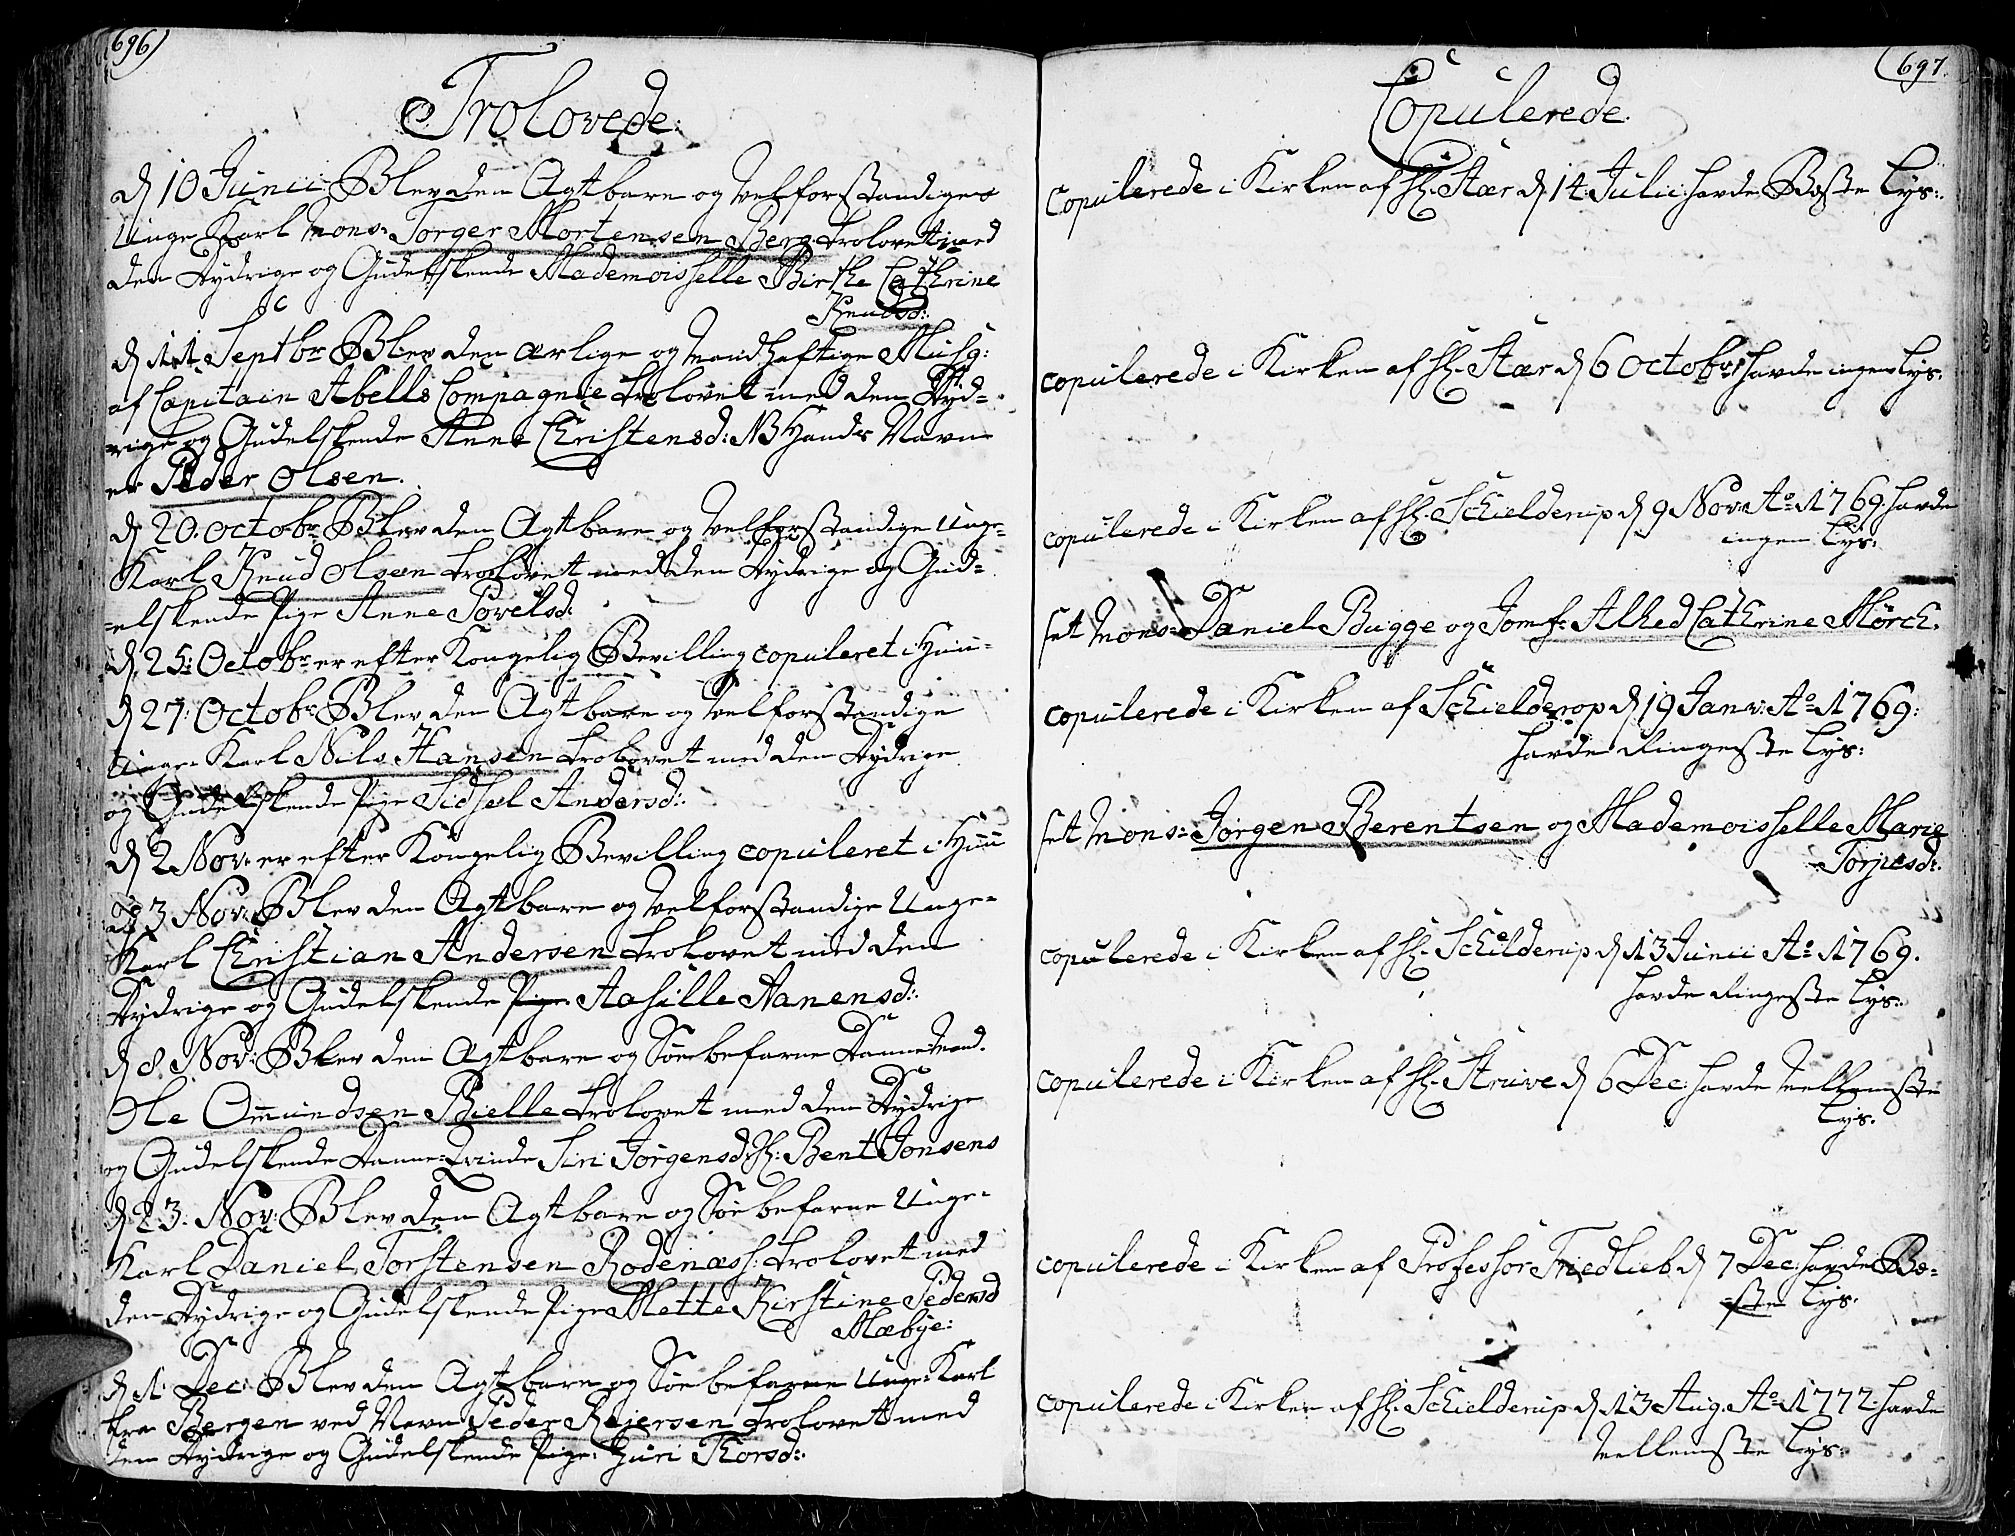 696)
Trolovede.
d 10 Junii Blev den Agtbare og Velforstandige
Unge Karl Mons: Torger Mortensen Berg trolovet med
den Dydrige og Gudelskende Mademoisselle Birthe Cathrine
Knudsd:
d 11 Septbr Blev den ærlige og Mandhaftige Musq:
af Capitain Abells Compagnie trolovet med den Dyd-
rige og Gudelskende Anne Christensd: NB Hands Navn
er Peder Olsen.
d 20. Octobr Blev den Agtbare og Velforstandige Unge-
Karl Knud Olsen trolovet med den Dydrige og Gud-
-elskende Pige Anne Povelsd:
d. 25: Octobr er efter Kongelig Bevilling copuleret i Huu-
d 27: Octobr Blev den Agtbare og Velforstandige
Unge Karl Nils Hansen trolovet med den Dydrige
og Gudelskende Pige Sidsel Andersd:
d 2 Nov: er efter Kongelig Bevilling copuleret i Huu
d 3 Nov: Blev den Agtbare og Velforstandige Unge-
Karl Christian Andersen trolovet med den
Dydrige og Gudelskende Pige Aasille Aanensd:
d 8. Nov: Blev den Agtbare og Søebefarne Danne-Mand.
Ole Omundsen Bielle trolovet med den Dydrige
og Gudelskende Danne-Qvinde Siri Jørgensd Sl: Bent Jonsens
d 23. Nov: Blev den Agtbare og Søebefarne Unge-
Karl Daniel Torstensen Rodenæss: trolovet med
den Dydrige og Gudelskende Pige Mette Kirstine Pedersd
Mæbye:
d 1. Dec: Blev den Agtbare og Søebefarne Unge Karl
fra Bergen ved Navn Peder Rejersen trolovet med
den Dydrige og Gudelskende Pige: Guri Thorsd:
(697.
Copulerede.
copulerede i Kirken af Hr. Stær d 14 Julii havde Beste Lys:
copulerede i Kirken af Hr. Stær d 6 Octobr: havde ingen Lys:
copulerede i Kirken af Hr. Schielderup d 9 Nov: Ao 1769: havde
ingen Lys:
set Mons: Daniel Bugge og Jomf: Alhed Cathrine Mørch.
copulerede i Kirken af Schielderop d 19 Janv: Ao 1769:
havde Ringeste Lys:
set Mons: Jørgen Berentsen og Mademoisselle Marie
Torjusd:
copulerede i Kirken af Hr. Schielderup d 13 Junii Ao 1769.
havde Ringeste Lys:
copulerede i Kirken af Hr. Struve d 6 Dec: havde Mellemste
Lys.
copulerede i Kirken af Professor Friedlieb d 7 Dec: havde Be-
-ste Lys.
copulerede i Kirken af Hr. Schielderup d 13 Aug. Ao 1772: havde
Mellemste Lys: